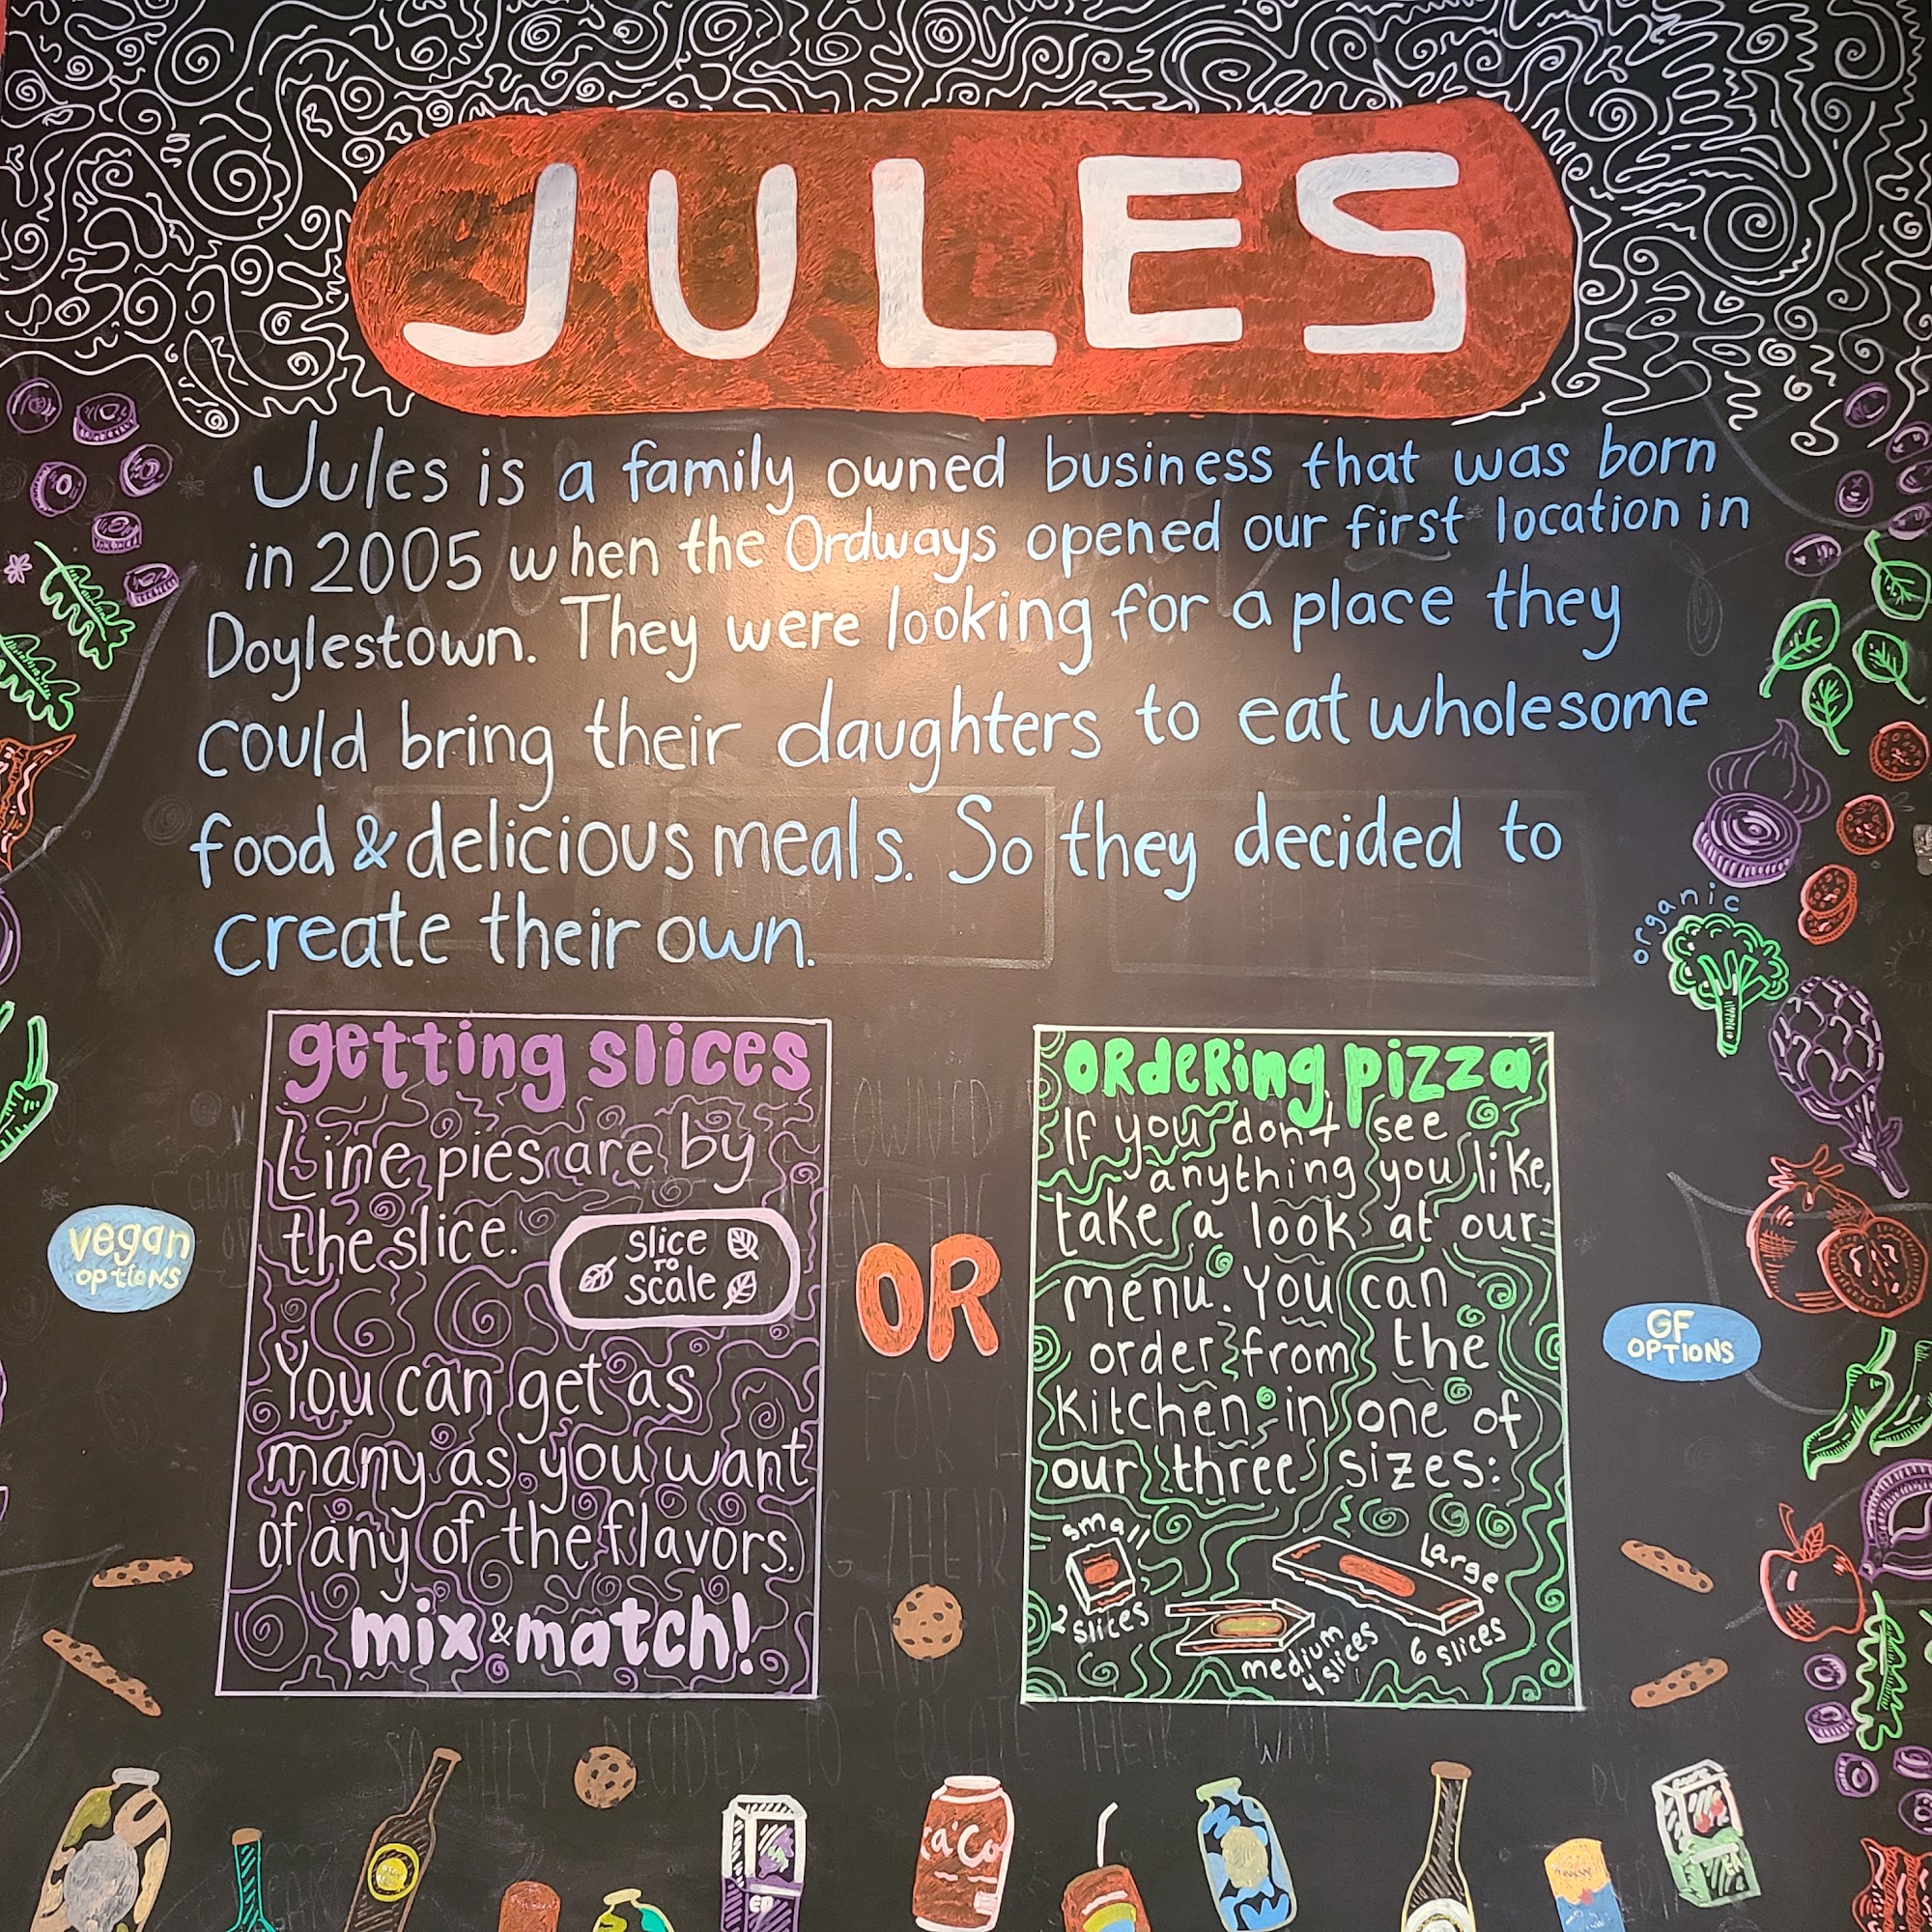 JULES
Jules is a family owned business that was born
in 2005 when the Ordways opened our first location in
Doylestown. They were looking for a place they
could bring their daughters to eat wholesome
food & delicious meals. So they decided to
create their own.
organic
getting slices
Line pies are by
the slice.
slice
TO
scale
You can get as
many as you want
of any of the flavors.
mix & match!
OR
ORdeRing pizza
If you don't see
anything you like,
take a look at our
menu. You can
order from the
Kitchen in one of
our three sizes:
small
2 slices
medium
4 slices
Large
6 slices
vegan
options
GF
OPTIONS